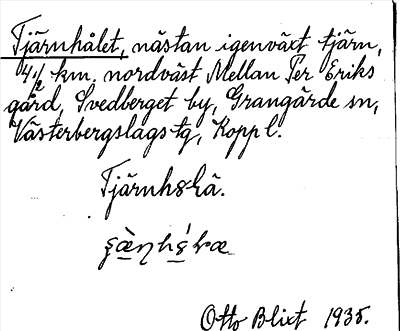 Tjärnhålet, nästan igenväxt tjärn,
4 1/2 km. nordväst Mellan Per Eriks
gård, Svedberget by, Grangärde sn,
Västerbergslags tg, Kopp l.
Tjärnhålä.
Otto Blixt 1935.